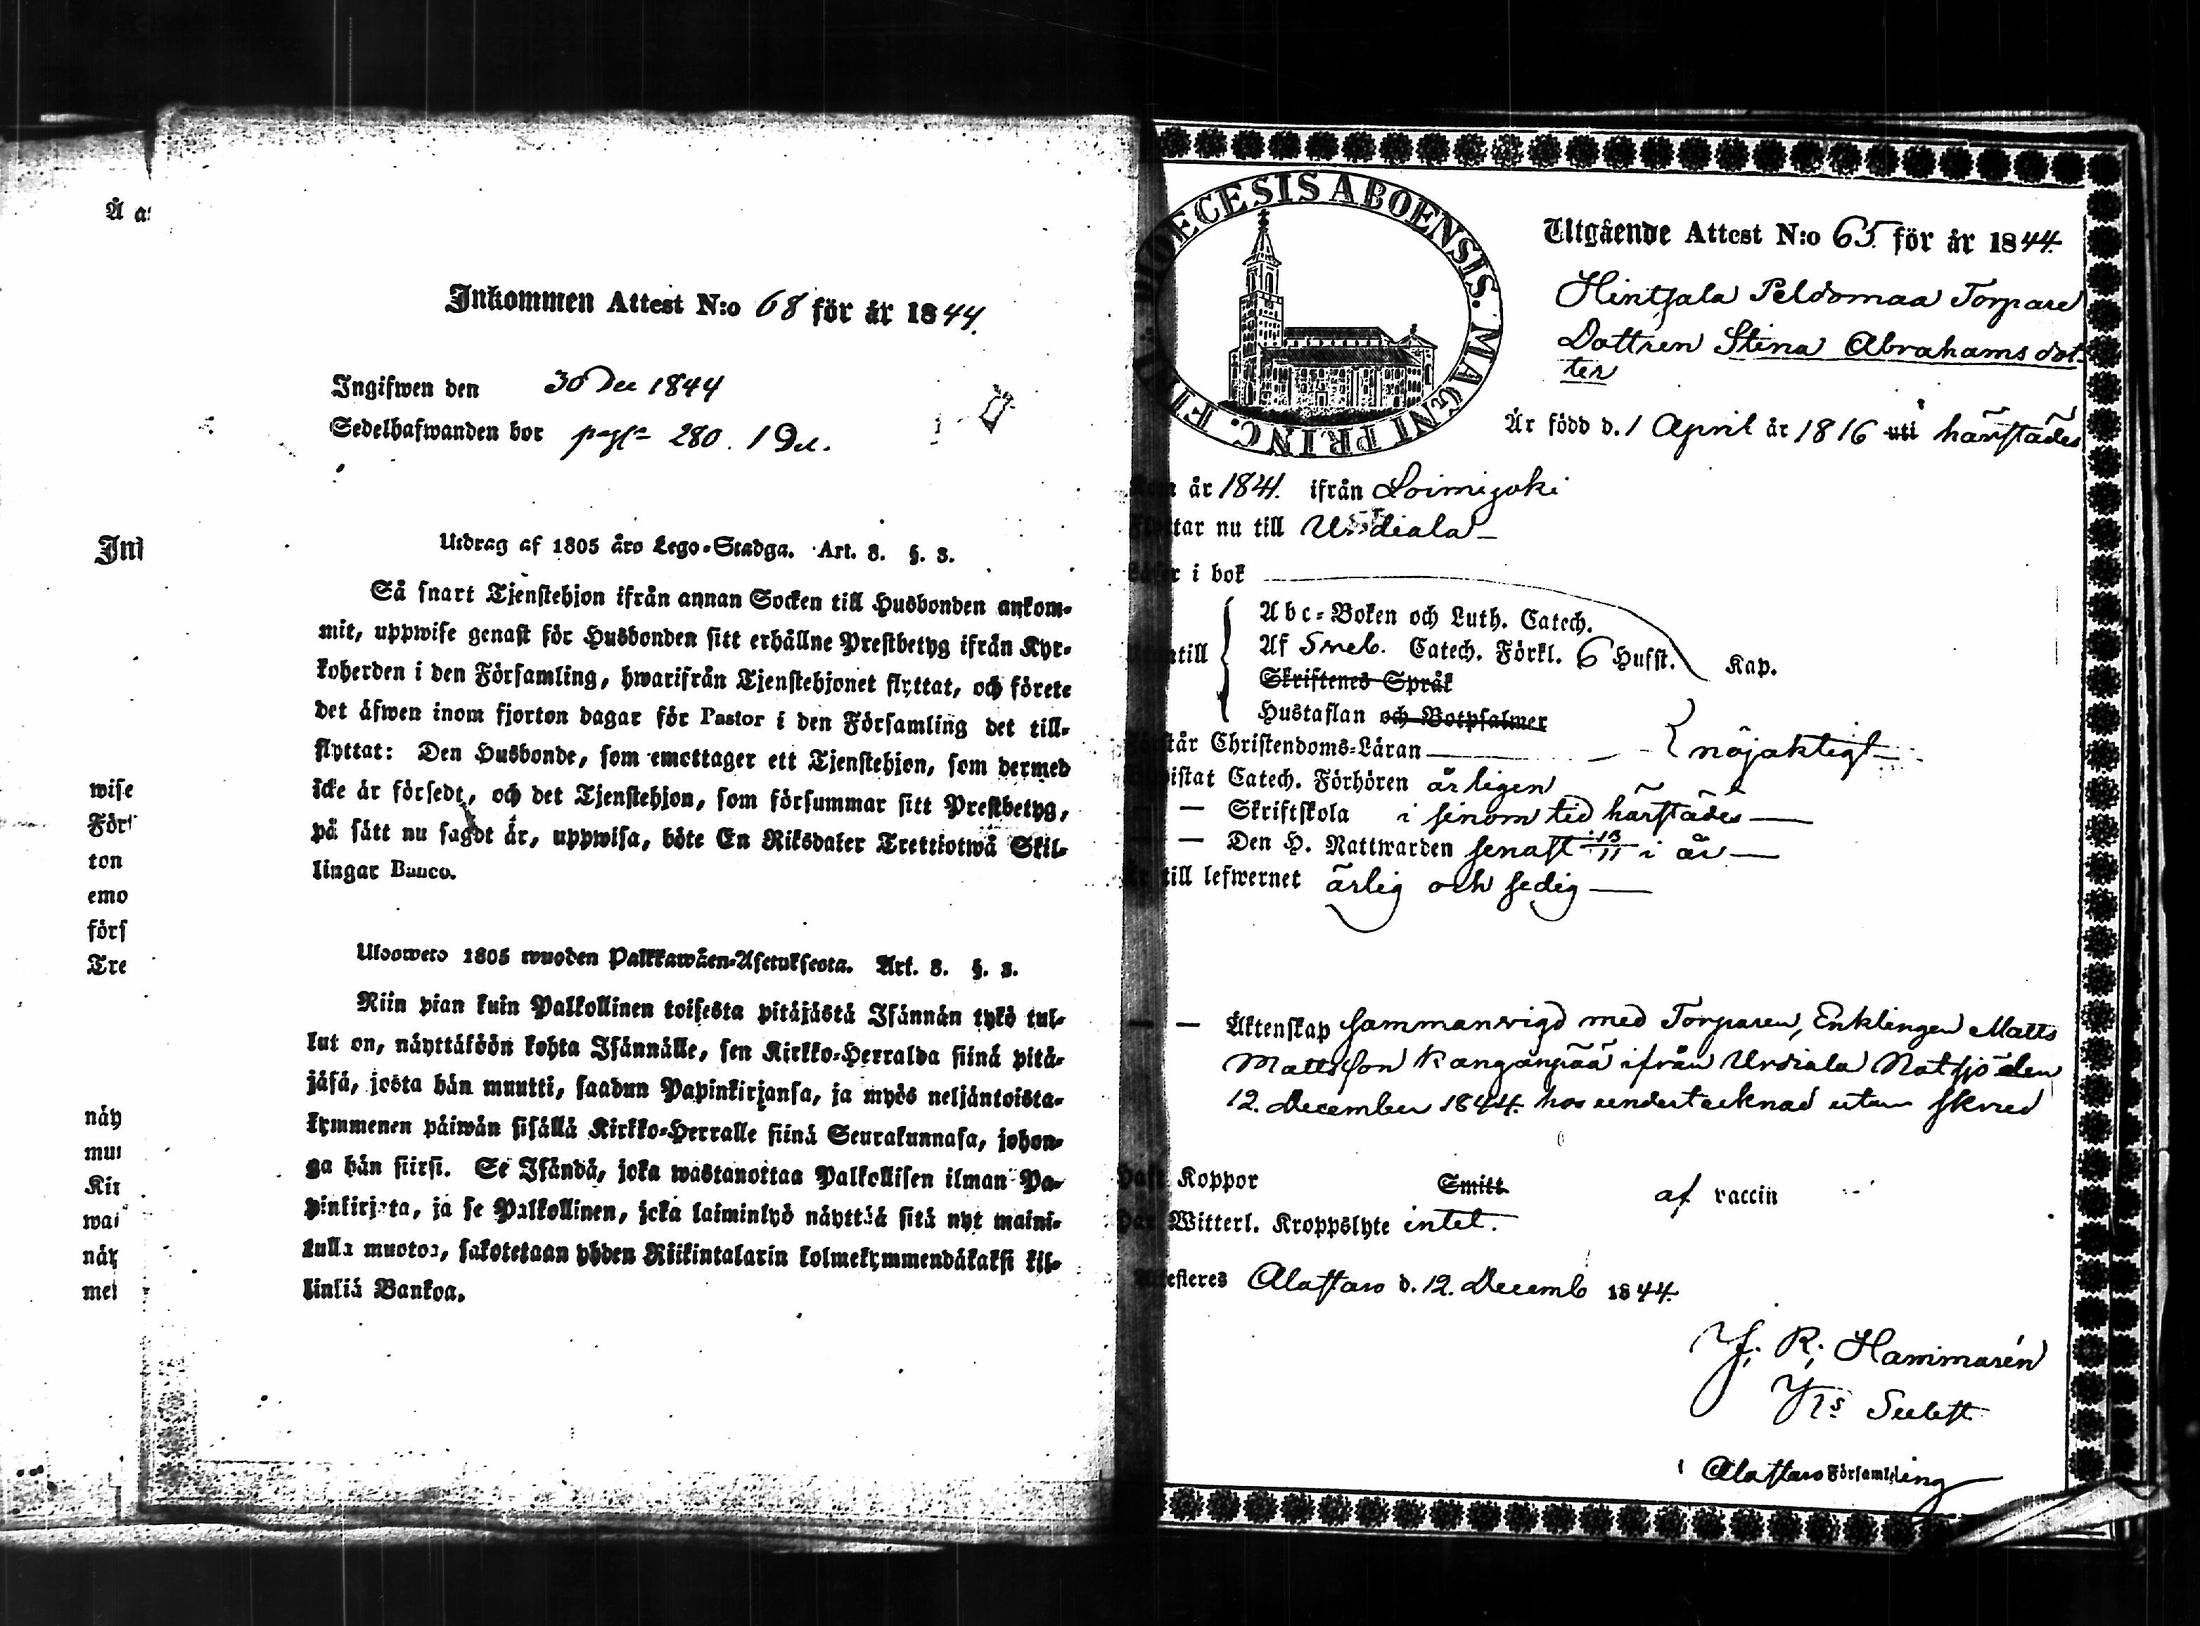 Å
Inkommen Attest N:o 68 för år 1844.
Ingifwen den 30 Dec 1844
Sedelhafwanden bor pag 280. 1 Del.
Utdrag af 1805 års Lego-Stadga. Art. 8. §. 3.
Så snart Tjenstehjon ifrån annan Socken till Husbonden ankom-
mit, uppwise genast för Husbonden sitt erhållne Prestbetyg ifrån Kyr-
koherden i den Församling, hwarifrån Tjenstehjonet flyttat, och förete
det äfwen inom fjorton dagar för Pastor i den Församling det till-
flyttat: Den Husbonde, som emottager ett Tjenstehjon, som dermed
icke är försedt, och det Tjenstehjon, som försummar sitt Prestbetyg,
på sätt nu sagdt är, uppwisa, böte En Riksdaler Trettiotwå Skil-
lingar Banco.
Ulosweto 1805 wuoden Palkkawäen-Asetuksesta. Art. 8. §. 3.
Niin pian kuin Palkollinen toisesta pitäjästä Isännän tykö tul-
lut on, näyttäköön kohta Isännälle, sen Kirkko-Herralda siinä pitä-
jäsä, josta hän muutti, saadun Papinkirjansa, ja myös neljäntoista-
kymmenen päiwän sisällä Kirkko-Herralle siinä Seurakunnasa, johon-
ga hän siirsi. Se Isändä, joka wastanottaa Palkollisen ilman Pa-
pinkirjata, ja se Palkollinen, joka laiminlyö näyttää sitä nyt maini-
tulla muotoa, sakotetaan yhden Riikintalarin kolmekymmendäkaksi kil-
linkiä Bankoa.
wise
ton
emo
förs
Tre
näy
mei
DIOECESIS ABOENSIS. MAGNI PRINC. FINL.
Utgående Attest N:o 65 för år 1844.
Hintsala Peldomaa Torpare
Dottren Stina Abrahamsdot-
ter
Är född d. 1 April år 1816 uti härstädes
Kom år 1841. ifrån Loimijoki
Flyttar nu till Urdiala
Läser i bok
Abc-Boken och Luth. Catech.
Utantill Af Sweb. Catech. Förkl. 6 Hufst. Kap.
Skriftenes Språk
Hustaflan och Botpsalmer
Förstår Christendoms-Läran nöjaktigt
Bewistat Catech. Förhören årligen
— — Skriftskola i sinom tid härstädes
— — Den H. Nattwarden senast 13/11 i år
Är till lefwernet ärlig och sedig
— — Äktenskap sammanvigd med Torparen, Enklingen Matts
Mattsson Kanganpää ifrån Urdiala Natsjö den
12. December 1844. hos undertecknad utan skrud
Haft Koppor Smitt. af vaccin
Har Witterl. Kroppslyte intet.
Attesteres Alastaro d. 12. Decemb 1844.
J. R. Hammarén
Alastaro Församling